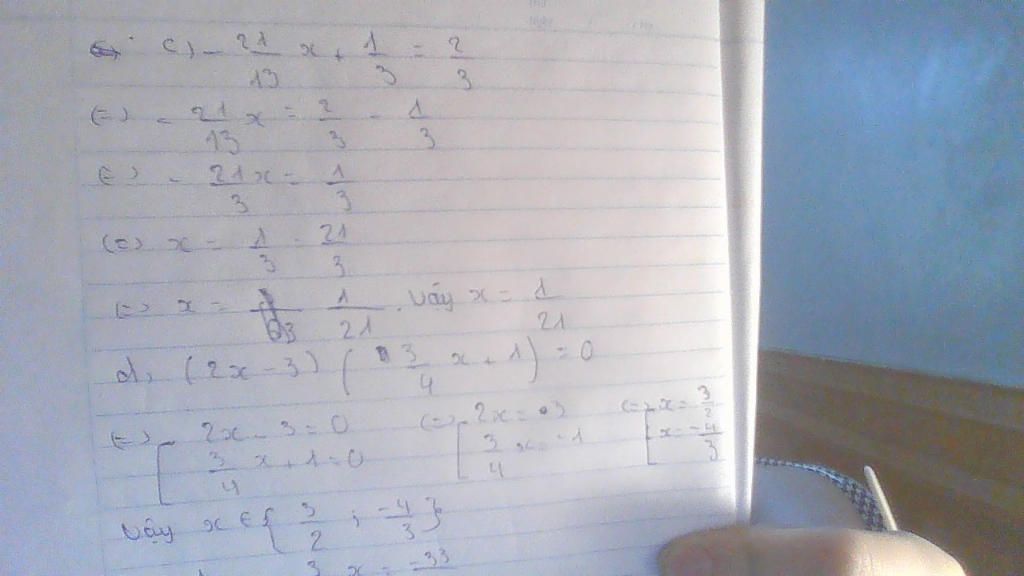 c, - 21/13 x + 1/3 = 2/3
(=) - 21/13 x = 2/3 - 1/3
(=) - 21/3 x = 1/3
(=) x = 1/3 . 21/3
(=) x = 1/21 . Vậy x = 1/21
d, (2x - 3) ( 3/4 x + 1 ) = 0
(=) [ 2x - 3 = 0 (=) [ 2x = 3 (=) [ x = 3/2
3/4 x + 1 = 0 3/4 x = -1 x = -4/3
Vậy x ∈ { 3/2 ; -4/3 }
3 x = -33